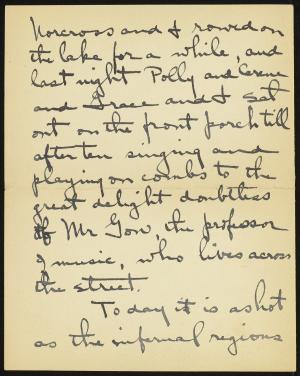 Norcross and I rowed on
the lake for a while, and
last night Polly and Cerene
and Grace and I sat
out on the front porch till
after ten singing and
playing on combs to the
great delight doubtless
of Mr Gow, the professor
of music, who lives across
the street.
Today it is as hot
as the infernal regions